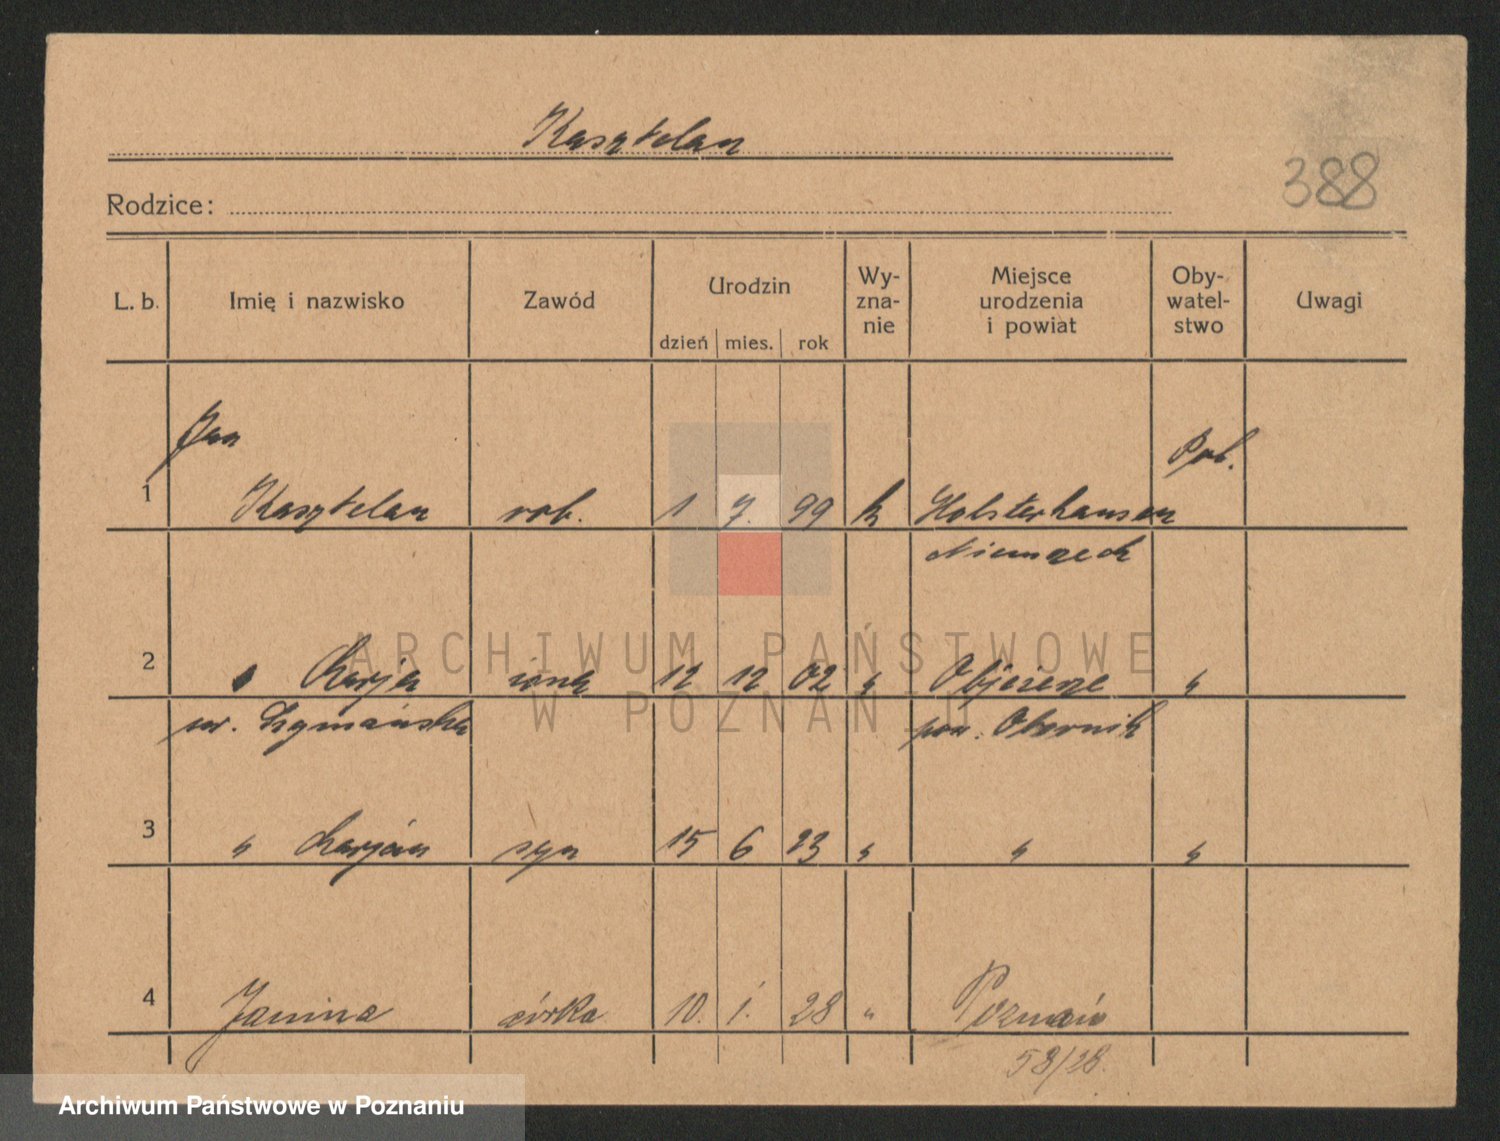 Kasztelan
388
Rodzice:
L. b. Imię i nazwisko Zawód Urodzin dzień mies. rok Wy-zna-nie Miejsce urodzenia i powiat Oby-watel-stwo Uwagi
Jan Pol.
1 Kasztelan rob. 1 7. 99 k Holsterhausen
Niemzech
ARCHIWUM PAŃSTWOWE
2 " Marja żona 12 12 02 " Objezierze "
W POZNANIU
ur. Szymańska pow. Obornik
3 " Marjan syn 15 6 23 " " "
4 Janina córka 10. 1. 28 " Poznań
58/28.
Archiwum Państwowe w Poznaniu